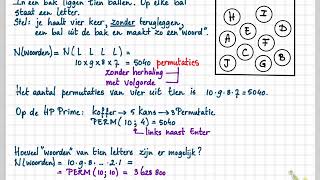 In een bak liggen tien ballen. Op elke bal
staat een letter.
Stel: je haalt vier keer, zonder terugleggen,
een bal uit de bak en maakt zo een "woord".
N(woorden) = N( L L L L )
10 × 9 × 8 × 7 = 5040 permutaties
zonder herhaling
met volgorde
Het aantal permutaties van vier uit tien is 10·9·8·7 = 5040.
Op de HP Prime: koffer → 5 Kans → 3 Permutatie
PERM ( 10; 4) = 5040
links naast Enter
Hoeveel "woorden" van tien letters zijn er mogelijk?
N(woorden) = 10·9·8· ... ·2·1 =
= PERM ( 10; 10) = 3 628 800
H
I
E
D
A
F
J
C
G
B